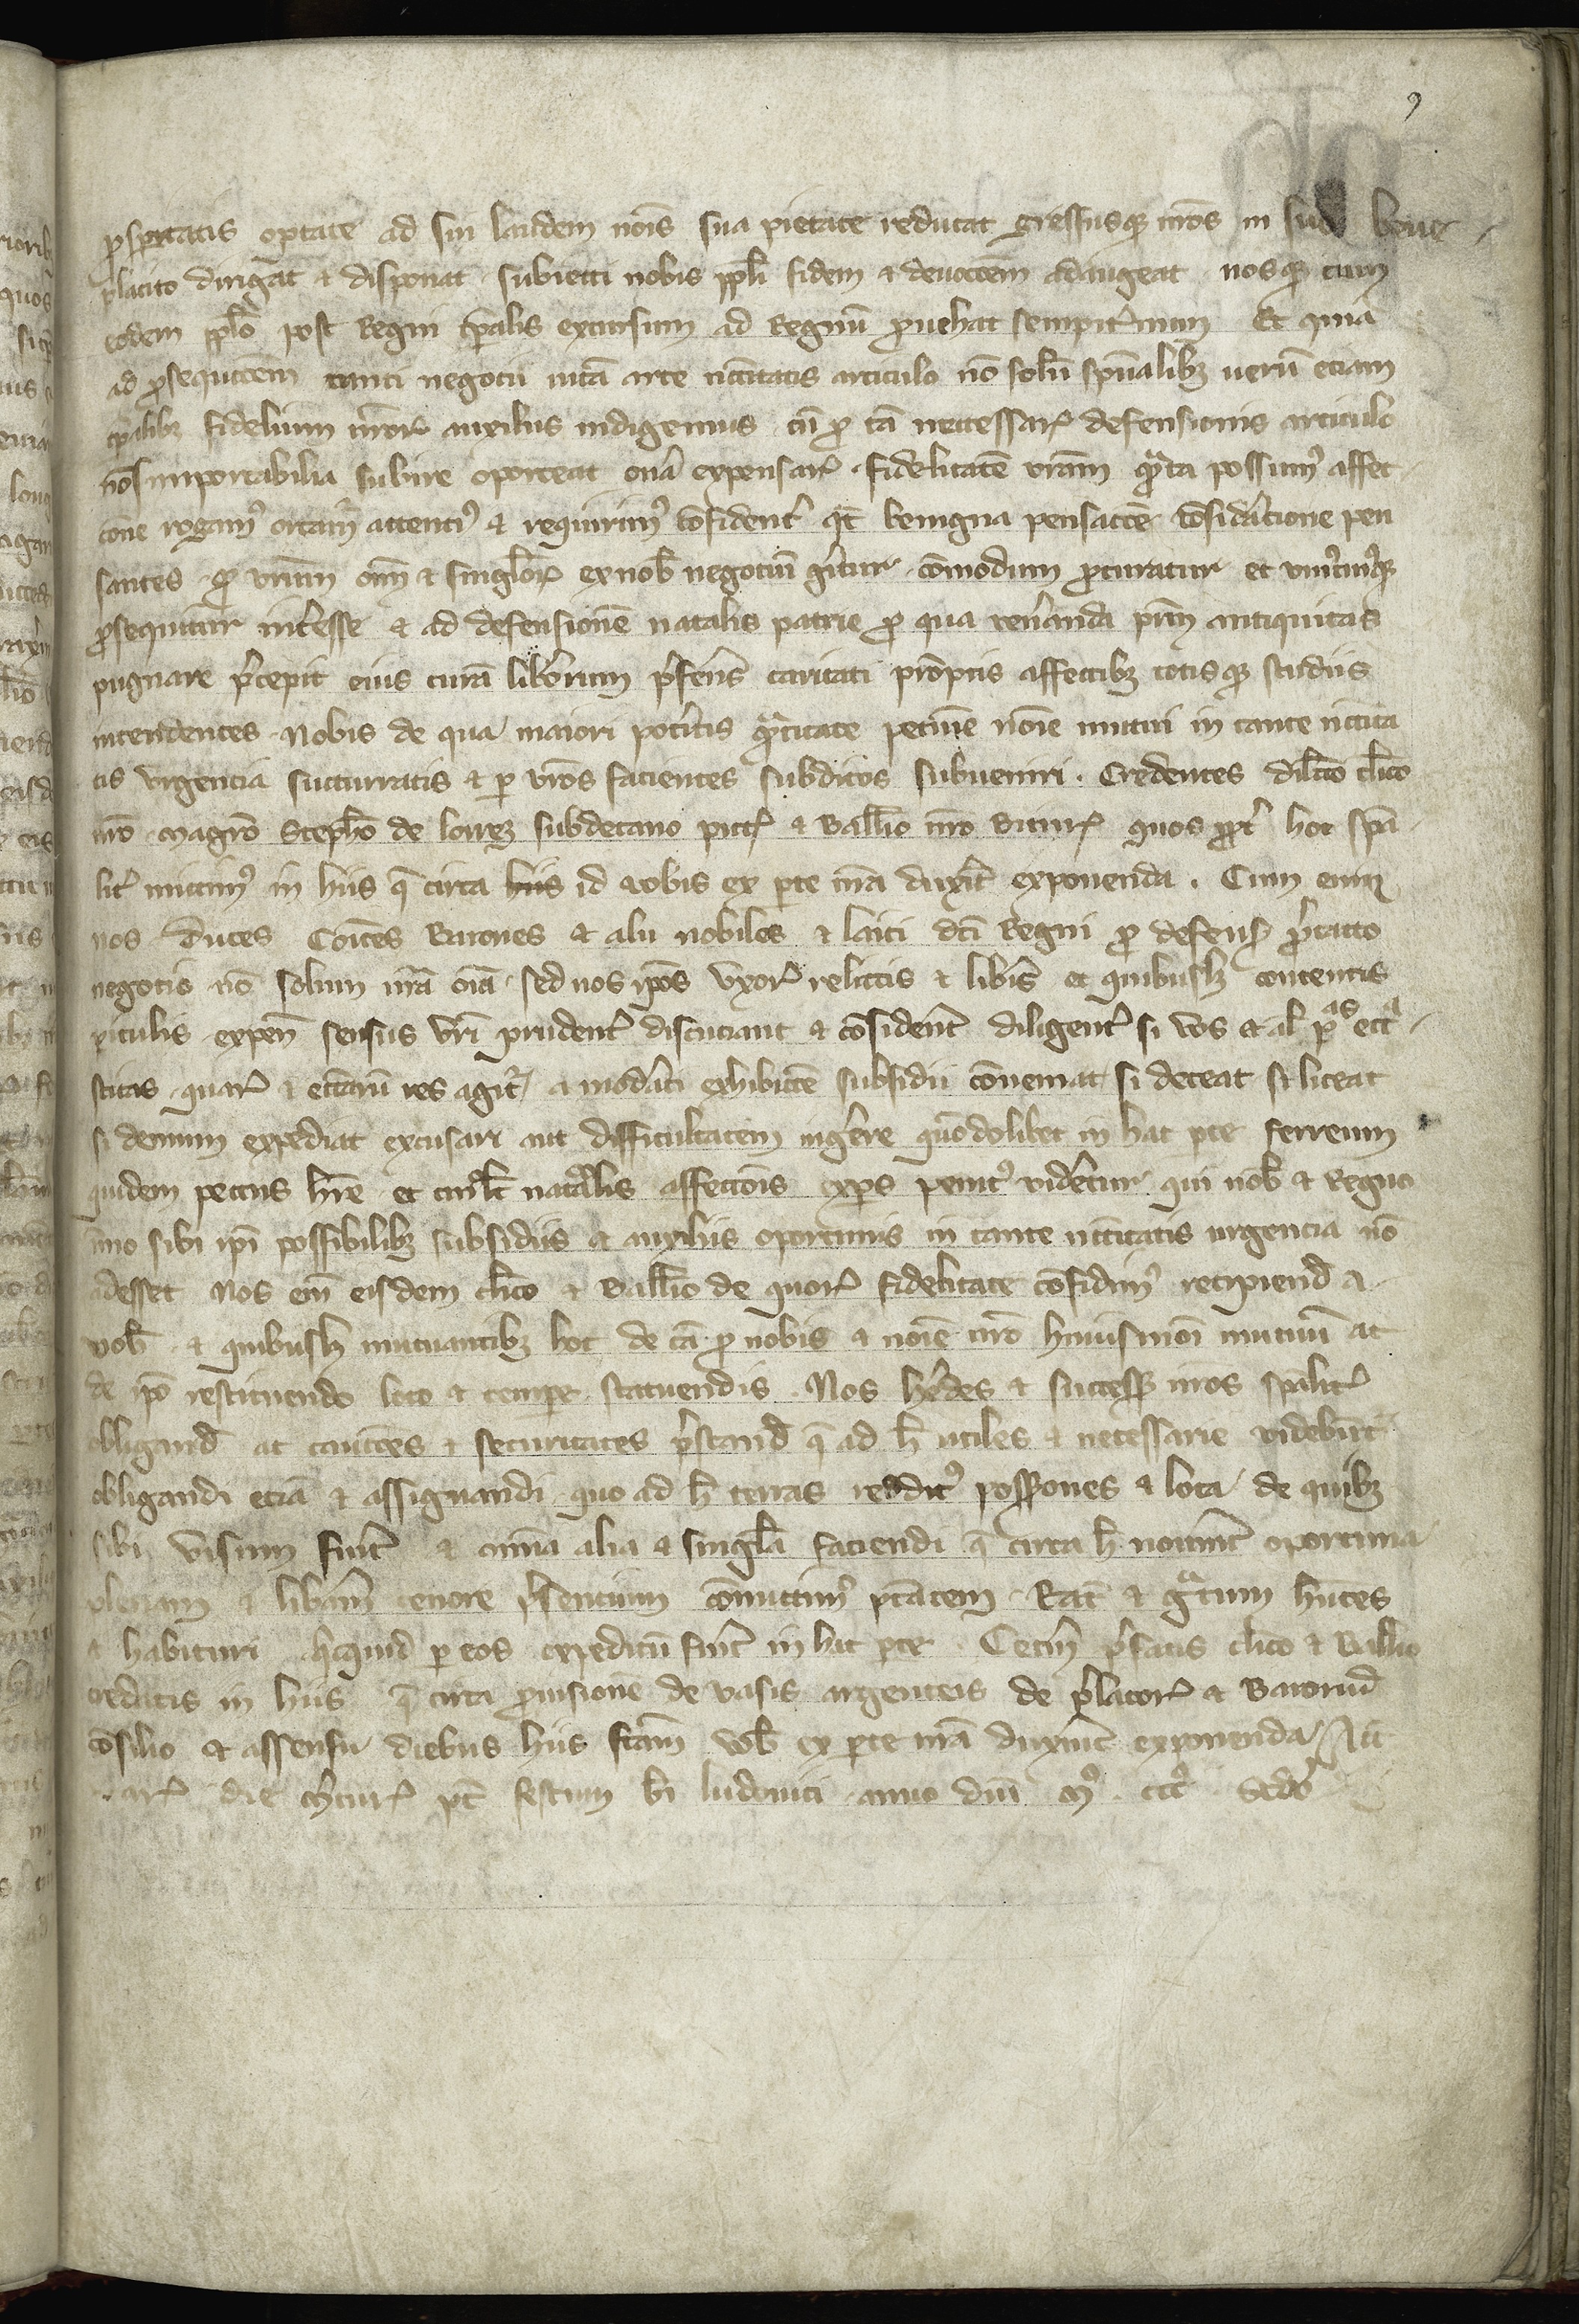 9
prosperitatis optate ad sui laudem nois sua pietate reducat gressusque nros in suo bene
placito dirigat et disponat subiecti nobis ppli fidem et devocoem adaugeat nosque cum
eodem pplo post Regni tpalis excursum ad Regnu provehat sempiternum Et quia
ad prosequcoem tanti negotii iuxta arte necitatis articulo no solu spualibz veru etiam
tpalibz fidelium nror auxiliis indigemus cu pro ta necessar defensionis articulo
nos importabilia subire oporteat ona expensar fidelitate vram quata possum affec
cone rogam ortam attenti et requirim confident qt benigna pensacoe consideracione pen
santes quod vrum oim et singlor ex nob negotiu geritur comodum procuratur et unicuiqz
prosequitur interesse et ad defensione natalis patrie pro qua reveranda prm antiquitas
pugnare precepit eius cura liberorum preferens caritati promptis affectibz totisqz studiis
intendentes Nobis de qua maiori poteritis quantitate pecunie noie mutui in tante necita
tis urgencia succurratis et per vros facientes subditos subveniri . Credentes dilcto clico
nro magro Stepho de lorrez subdecano pict et Ballio nro Bitur quos propt hoc spa
lit mittim in hiis que circa id vobis ex pte nra duxerit exponenda . Cum enim
nos Duces Comtes Barones et alii nobiles et laici dci Regni pro defens pretacto
negotio no solum nra oia sed nos ipos uxor relictis et liberis et quibuslz contentis
piculis expen sensus vri prudent discutiant et considerent diligent si vos et al psas eccl
siticas quar et eccaru res agit a moderati exhibicoe subsidii conveniat si deceat si liceat
si demum expediat excusari aut difficultatem ingerere quomodolibet in hac pte ferreum
quidem pectus hre et cuiuslt naturalis affectois exps penit videretur qui nob et Regno
imo sibi ipi possibilibz subsidiis et auxiliis oportunis in tante necitatis urgencia no
adesset Nos em eisdem clico et Ballio de quor fidelitate confidim recipiend a
vob et quibuslz mutuantibz hoc de ca pro nobis et noie nro huiusmoi mutuu ac
de ipo restituendo loco et tempe statuendis Nos heredes et success nros spalit
obligand ac caucoes et securitates prestand que ad h utiles et necessarie videbunt
obligandi ecia et assignandi quo ad h terras reddit possiones et loca de quibz
sibi visum fuit et omia alia et singla faciendi que circa h noverint oportuna
plenam et liberam tenore presentium committim ptatem Rat et gratum hntes
et habituri quicquid per eos expeditu fuit in hac pte Ceterum prefatis clico et Ballio
credatis in hiis que circa provisione de vasis argenteis de prelator et Baronu
consilio et assensu diebus hiis factam vob ex pte nra duxerint exponenda Act
par die Mercur pt festum bi ludovici anno dni Mo . ccco . Scdo